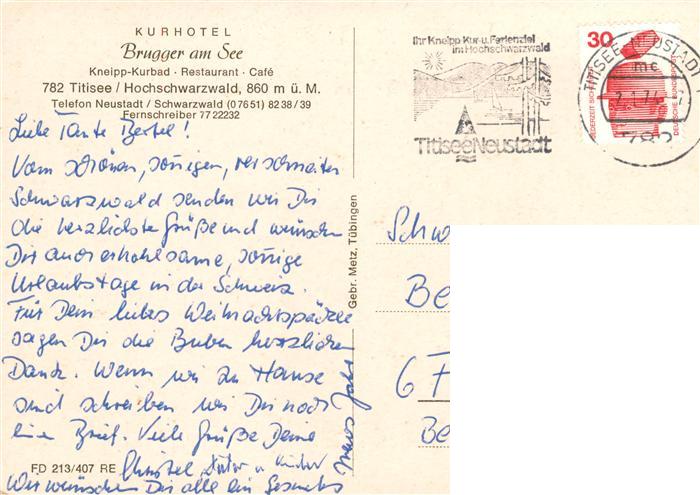 KURHOTEL
Brugger am See
Kneipp-Kurbad · Restaurant · Café
782 Titisee / Hochschwarzwald, 860 m ü. M.
Telefon Neustadt / Schwarzwald (0 76 51) 82 38 / 39
Fernschreiber 77 22232
Liebe Tante Bertel!
Vom schönen, sonnigen, verschneiten
Schwarzwald senden wir Dir
die herzlichste Grüße und wünschen
Dir auch erholsame, sonnige
Urlaubstage in der Schweiz.
Für Dein liebes Weihnachtspäckle
sagen Dir die Buben herzlichen
Dank. Wenn wir zu Hause
sind schreiben wir Dir noch
ein Brief. Viele Grüße Deine
Christel, Dieter u Kinder
Wir wünschen Dir alle ein Gesundes
neues Jahr
FD 213/407 RE
Gebr. Metz, Tübingen
Ihr Kneipp-Kur-u. Ferienziel
im Hochschwarzwald
Titisee Neustadt
30
JEDERZEIT SICHERHEIT
DEUTSCHE BUNDESPOST
TITISEE-NEUSTADT
mc
2.1.74
782
Schw
Be
6 F
Be